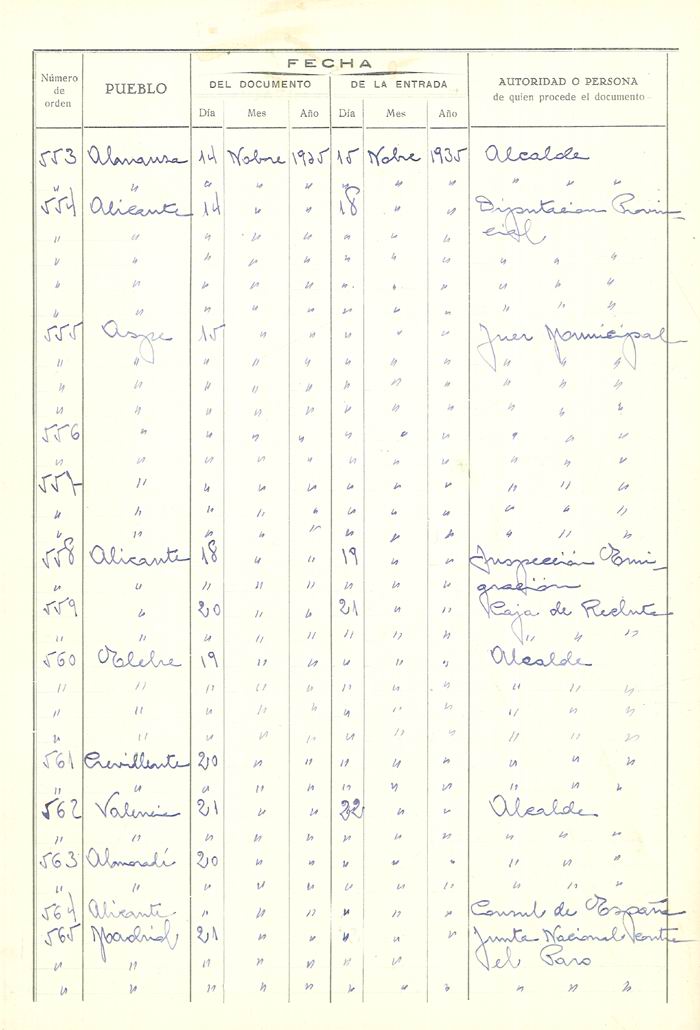 FECHA
Número de orden PUEBLO DEL DOCUMENTO DE LA ENTRADA AUTORIDAD O PERSONA de quien procede el documento
Día Mes Año Día Mes Año
553 Almansa 14 Nobre 1935 15 Nobre 1935 Alcalde
" " " " " " "
554 Alicante 14 " " 18 " " Diputacion Provin-
" " " " " " " " cial
" " " " " " " " " " "
" " " " " " " " " " "
" " " " " " " " " " "
555 Aspe 15 " " " " " Juez Municipal
" " " " " " " " " " "
" " " " " " " " " " "
" " " " " " " " " " "
556 " " " " " " " " " "
" " " " " " " " " " "
557 " " " " " " " " " "
" " " " " " " " " " "
" " " " " " " " " " "
558 Alicante 18 " " 19 " " Inspección Emi-
" " " " " " " " gración
559 " 20 " " 21 " " Caja de Recluta
" " " " " " " " " " "
560 Elche 19 " " " " " Alcalde
" " " " " " " " " " "
" " " " " " " " " " "
" " " " " " " " " " "
561 Crevillente 20 " " " " " " " "
" " " " " " " " " " "
562 Valencia 21 " " 22 " " Alcalde
" " " " " " " " " " "
563 Almoradí 20 " " " " " " " "
" " " " " " " " " " "
564 Alicante " " " " " " Consul de España
565 Madrid 21 " " " " " Junta Nacional contra
" " " " " " " el Paro
" " " " " " " " " " "